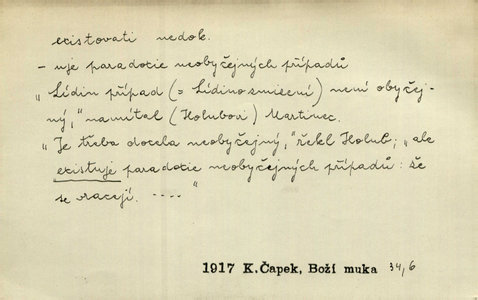 existovati nedok.
- uje paradoxie neobyčejných případů
„Lídin případ (= Lídino zmizení) není obyčej-
ný,“ namítal (Holubovi) Martinec.
„Je třeba docela neobyčejný,“ řekl Holub; „ale
existuje paradoxie neobyčejných případů: že
se vracejí. ....“
1917 K.Čapek, Boží muka 34,6